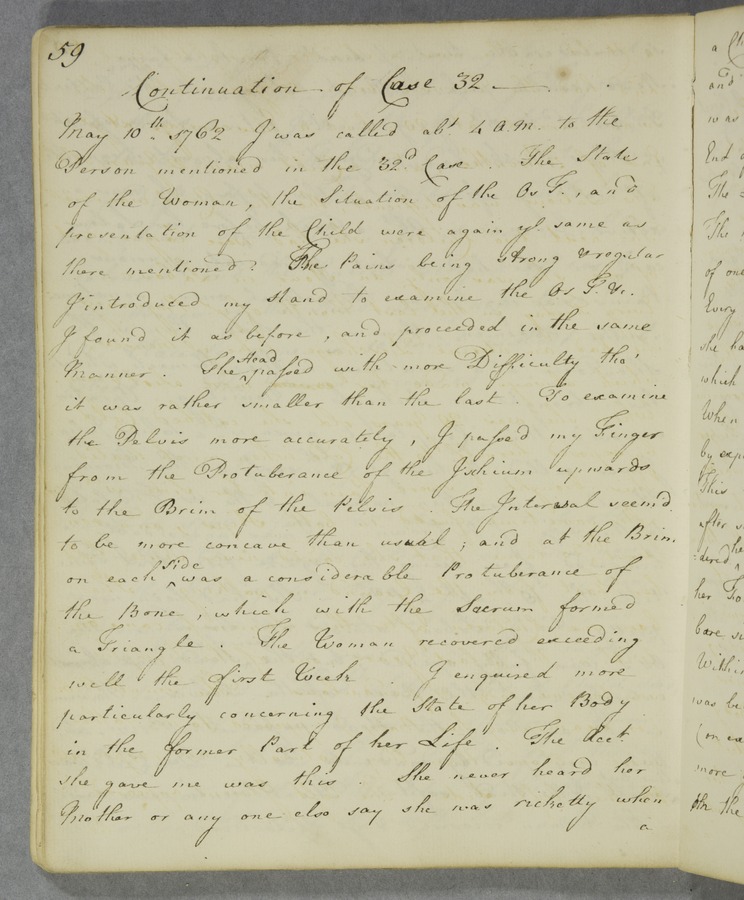 59
Continuation of Case 32
May 10th 1762 I was called abt 4 A.M. to the
Person mentioned in the 32d Case. The State
of the Woman, the Situation of the Os T., and
presentation of the Child were again ye same as
there mentioned. The Pains being strong & regular
I introduced my Hand to examine the Os T. &c.
I found it as before, and proceeded in the same
Manner. The Head passed with more Difficulty tho'
it was rather smaller than the last. To examine
the Pelvis more accurately, I passed my Finger
from the Protuberance of the Ischium upwards
to the Brim of the Pelvis. The Interval seem'd
to be more concave than usual; and at the Brim
on each side was a considerable Protuberance of
the Bone, which with the Sacrum formed
a Triangle. The Woman recovered exceeding
well the first Week. I enquired more
particularly concerning the State of her Body
in the former Part of her Life. The Acct.
she gave me was this. She never heard her
Mother or any one else say she was ricketty when
a
a
and
was
The
The
of one
Every
she ha
which
When
by exp
This
after
:dered he
her
bare
Within
was be
(or
more
the